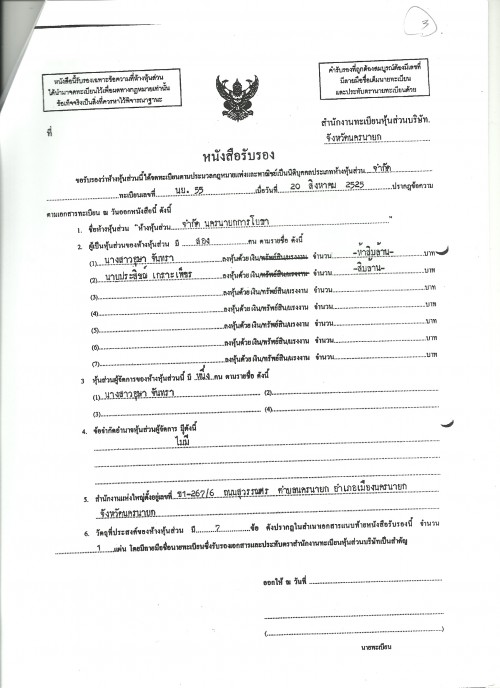 3
หนังสือนี้รับรองเฉพาะข้อความที่ห้างหุ้นส่วน
ได้นำมาจดทะเบียนไว้เพื่อผลทางกฎหมายเท่านั้น
ข้อเท็จจริงเป็นสิ่งที่ควรหาไว้พิจารณาฐานะ
คำรับรองที่ถูกต้องสมบูรณ์ต้องมีเลขที่
มีลายมือชื่อเต็มนายทะเบียน
และประทับตรานายทะเบียนด้วย
ที่
สำนักงานทะเบียนหุ้นส่วนบริษัท.
จังหวัดนครนายก
หนังสือรับรอง
ขอรับรองว่าห้างหุ้นส่วนนี้ได้จดทะเบียนตามประมวลกฎหมายแพ่งและพาณิชย์เป็นนิติบุคคลประเภทห้างหุ้นส่วน จำกัด
ทะเบียนเลขที่ นย. 55 เมื่อวันที่ 20 สิงหาคม 2525 ปรากฏข้อความ
ตามเอกสารทะเบียน ณ วันออกหนังสือนี้ ดังนี้
1. ชื่อห้างหุ้นส่วน "ห้างหุ้นส่วน จำกัด นครนายกการโยธา
2. ผู้เป็นหุ้นส่วนของห้างหุ้นส่วน มี สอง คน ตามรายชื่อ ดังนี้
(1) นางสาวชุษา จันทรา ลงหุ้นด้วย เงิน/ทรัพย์สิน/แรงงาน จำนวน -ห้าสิบล้าน- บาท
(2) นายประสิชณ์ เกลาะเพ็ชร ลงหุ้นด้วย เงิน/ทรัพย์สิน/แรงงาน จำนวน -สิบล้าน- บาท
(3) ลงหุ้นด้วย เงิน/ทรัพย์สิน/แรงงาน จำนวน บาท
(4) ลงหุ้นด้วย เงิน/ทรัพย์สิน/แรงงาน จำนวน บาท
(5) ลงหุ้นด้วย เงิน/ทรัพย์สิน/แรงงาน จำนวน บาท
(6) ลงหุ้นด้วย เงิน/ทรัพย์สิน/แรงงาน จำนวน บาท
(7) ลงหุ้นด้วย เงิน/ทรัพย์สิน/แรงงาน จำนวน บาท
3 หุ้นส่วนผู้จัดการของห้างหุ้นส่วนนี้ มี หนึ่ง คน ตามรายชื่อ ดังนี้
(1) นางสาวชุษา จันทรา (2)
(3) (4)
4. ข้อจำกัดอำนาจหุ้นส่วนผู้จัดการ มีดังนี้
ไม่มี
5. สำนักงานแห่งใหญ่ตั้งอยู่เลขที่ ข1-267/6 ถนนสุวรรณศร ตำบลนครนายก อำเภอเมืองนครนายก
จังหวัดนครนายก
6. วัตถุที่ประสงค์ของห้างหุ้นส่วน มี 7 ข้อ ดังปรากฏในสำเนาเอกสารแนบท้ายหนังสือรับรองนี้ จำนวน
1 แผ่น โดยมีลายมือชื่อนายทะเบียนซึ่งรับรองเอกสารและประทับตราสำนักงานทะเบียนหุ้นส่วนบริษัทเป็นสำคัญ
ออกให้ ณ วันที่
( )
นายทะเบียน